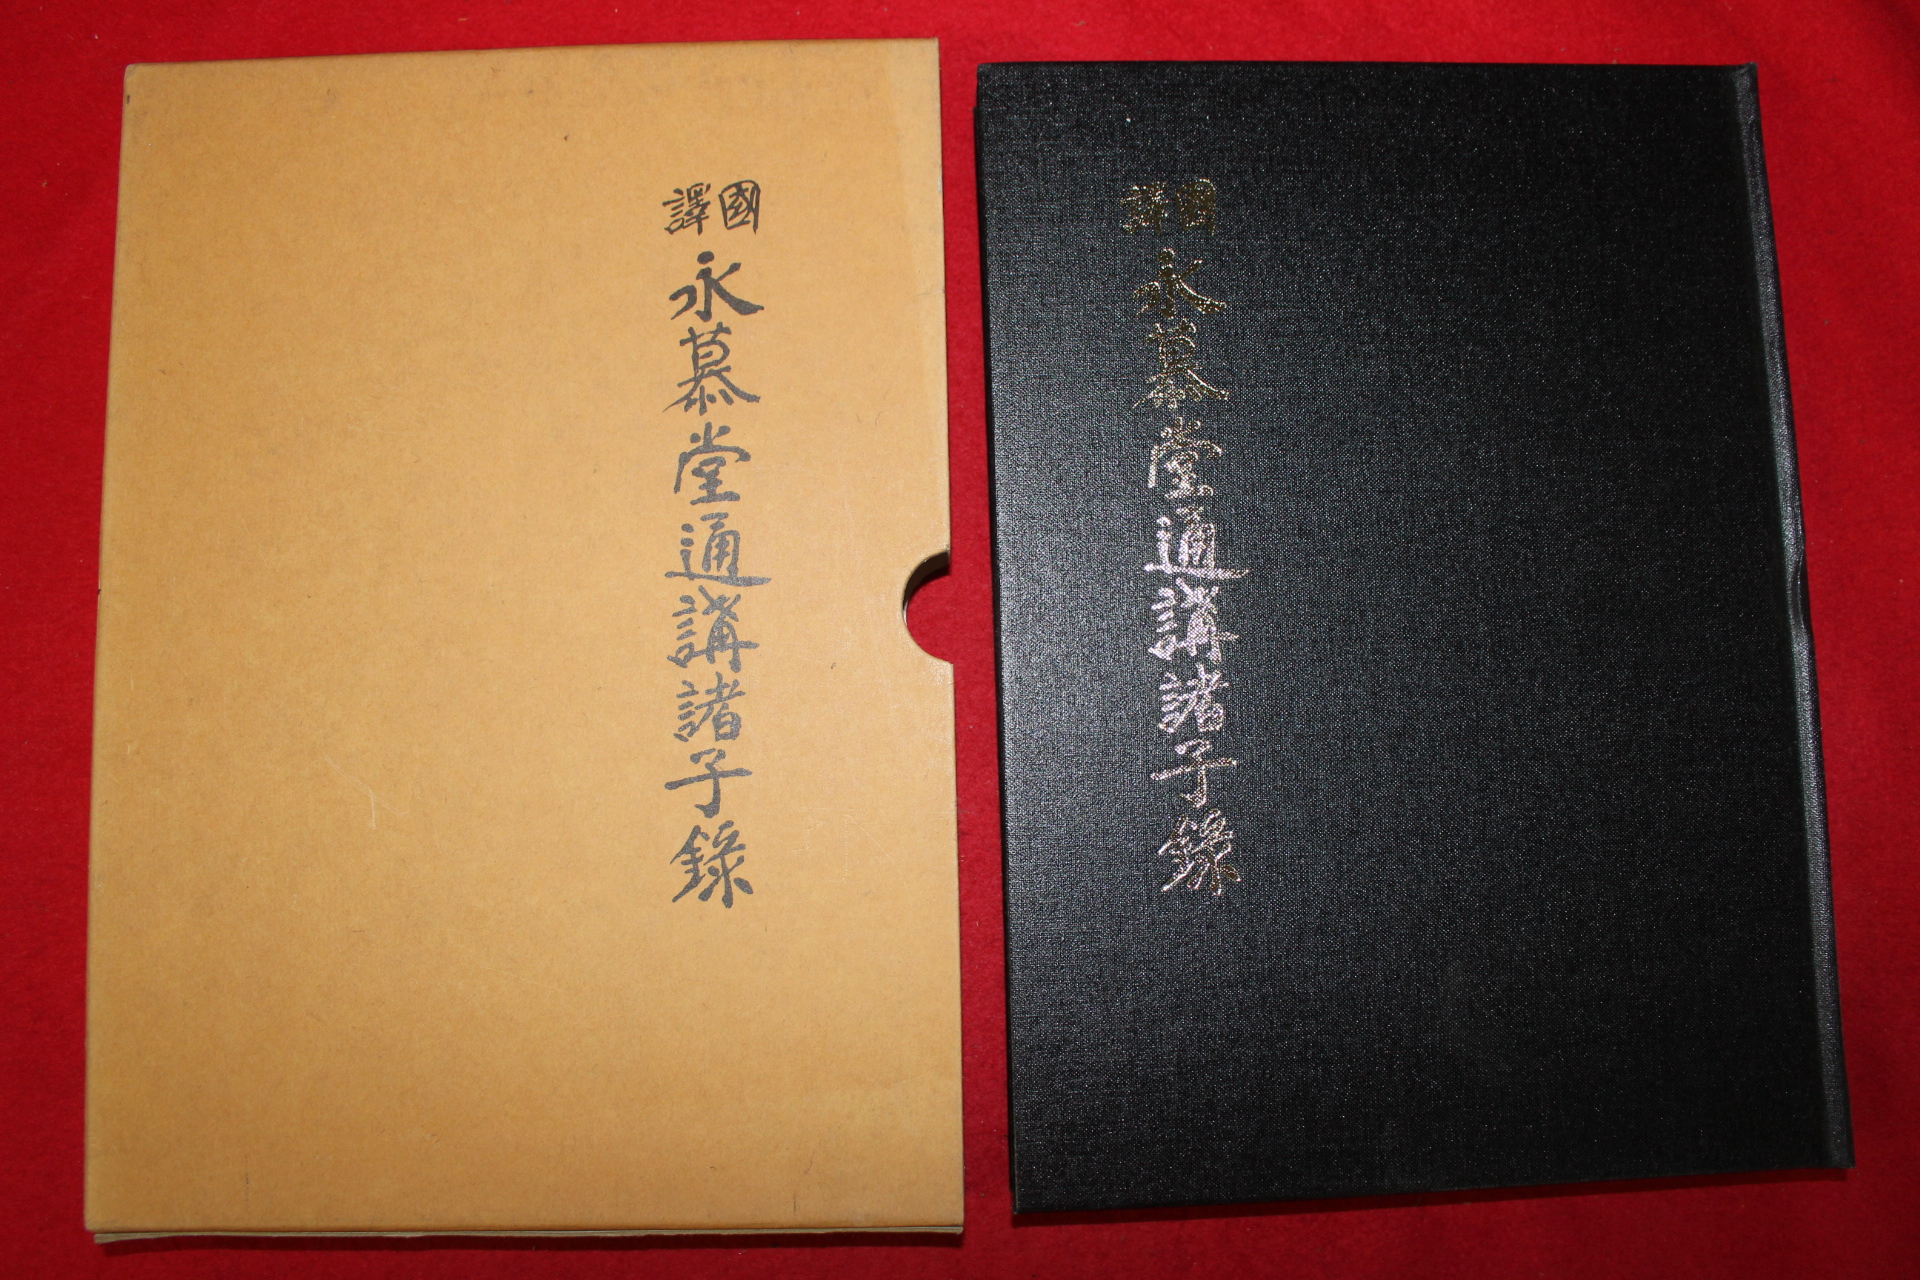 國譯
永慕堂通講諸子錄
國譯
永慕堂通講諸子錄